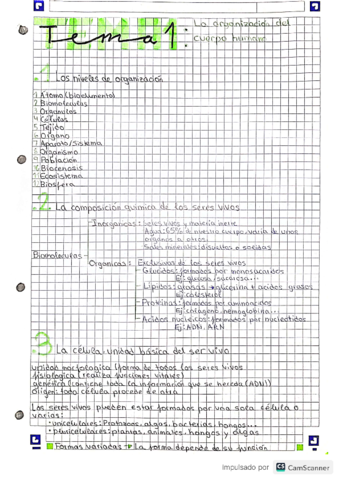 Tema 1: La organización del
cuerpo humano
.1 Los niveles de organización
1 Átomo (bioelemento)
2 Biomoléculas
3 Orgánulos
4 Células
5 Tejido
6 Órgano
7 Aparato/Sistema
8 Organismo
9 Población
Biocenosis
Ecosistema
Biosfera
.2 La composición química de los seres vivos
Inorgánicas: Seres vivos y materia inerte
Agua: 65% de nuestro cuerpo, varía de unos
órganos a otros.
Sales minerales: disueltas o sólidas
Biomoléculas
Orgánicas: Exclusivas de los seres vivos
Glúcidos: formados por monosacáridos
Ej: glucosa, sacarosa...
Lípidos: grasas → glicerina + ácidos grasos
Ej: colesterol
Proteínas: formadas por aminoácidos
Ej: colágeno, hemoglobina...
Ácidos nucleicos: formados por nucleótidos
Ej: ADN, ARN
.3 La célula, unidad básica del ser vivo
Unidad morfológica (forma de todos los seres vivos)
fisiológica (realiza funciones vitales)
genética (contiene toda la información que se hereda (ADN))
Origen: toda célula procede de otra
Los seres vivos pueden estar formados por una sola célula o
varias:
• unicelulares: Protozoos, algas, bacterias, hongos...
• pluricelulares: plantas, animales, hongos y algas
Formas variadas → La forma depende de su función
Impulsado por CS CamScanner